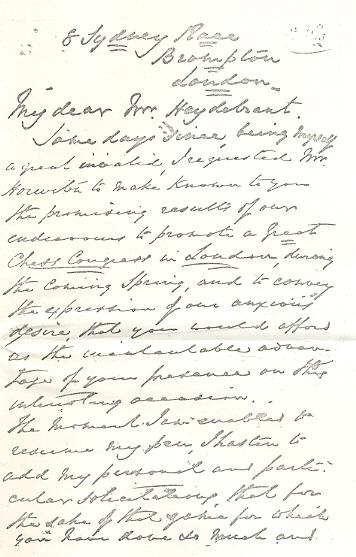 8 Sydney Place
Brompton
London
My dear Mr. Heydebrant.
Some days since, being myself
a great invalid, I requested Mr.
Horwitz to make known to you
the promising results of our
endeavours to promote a Great
Chess Congress in London, during
the coming Spring, and to convey
the expression of our anxious
desire that you would afford
us the incalculable advan-
tage of your presence on this
interesting occasion.
The moment I am enabled to
resume my pen, I hasten to
add my personal and parti-
cular solicitations, that for
the sake of that game for which
you have done so much and